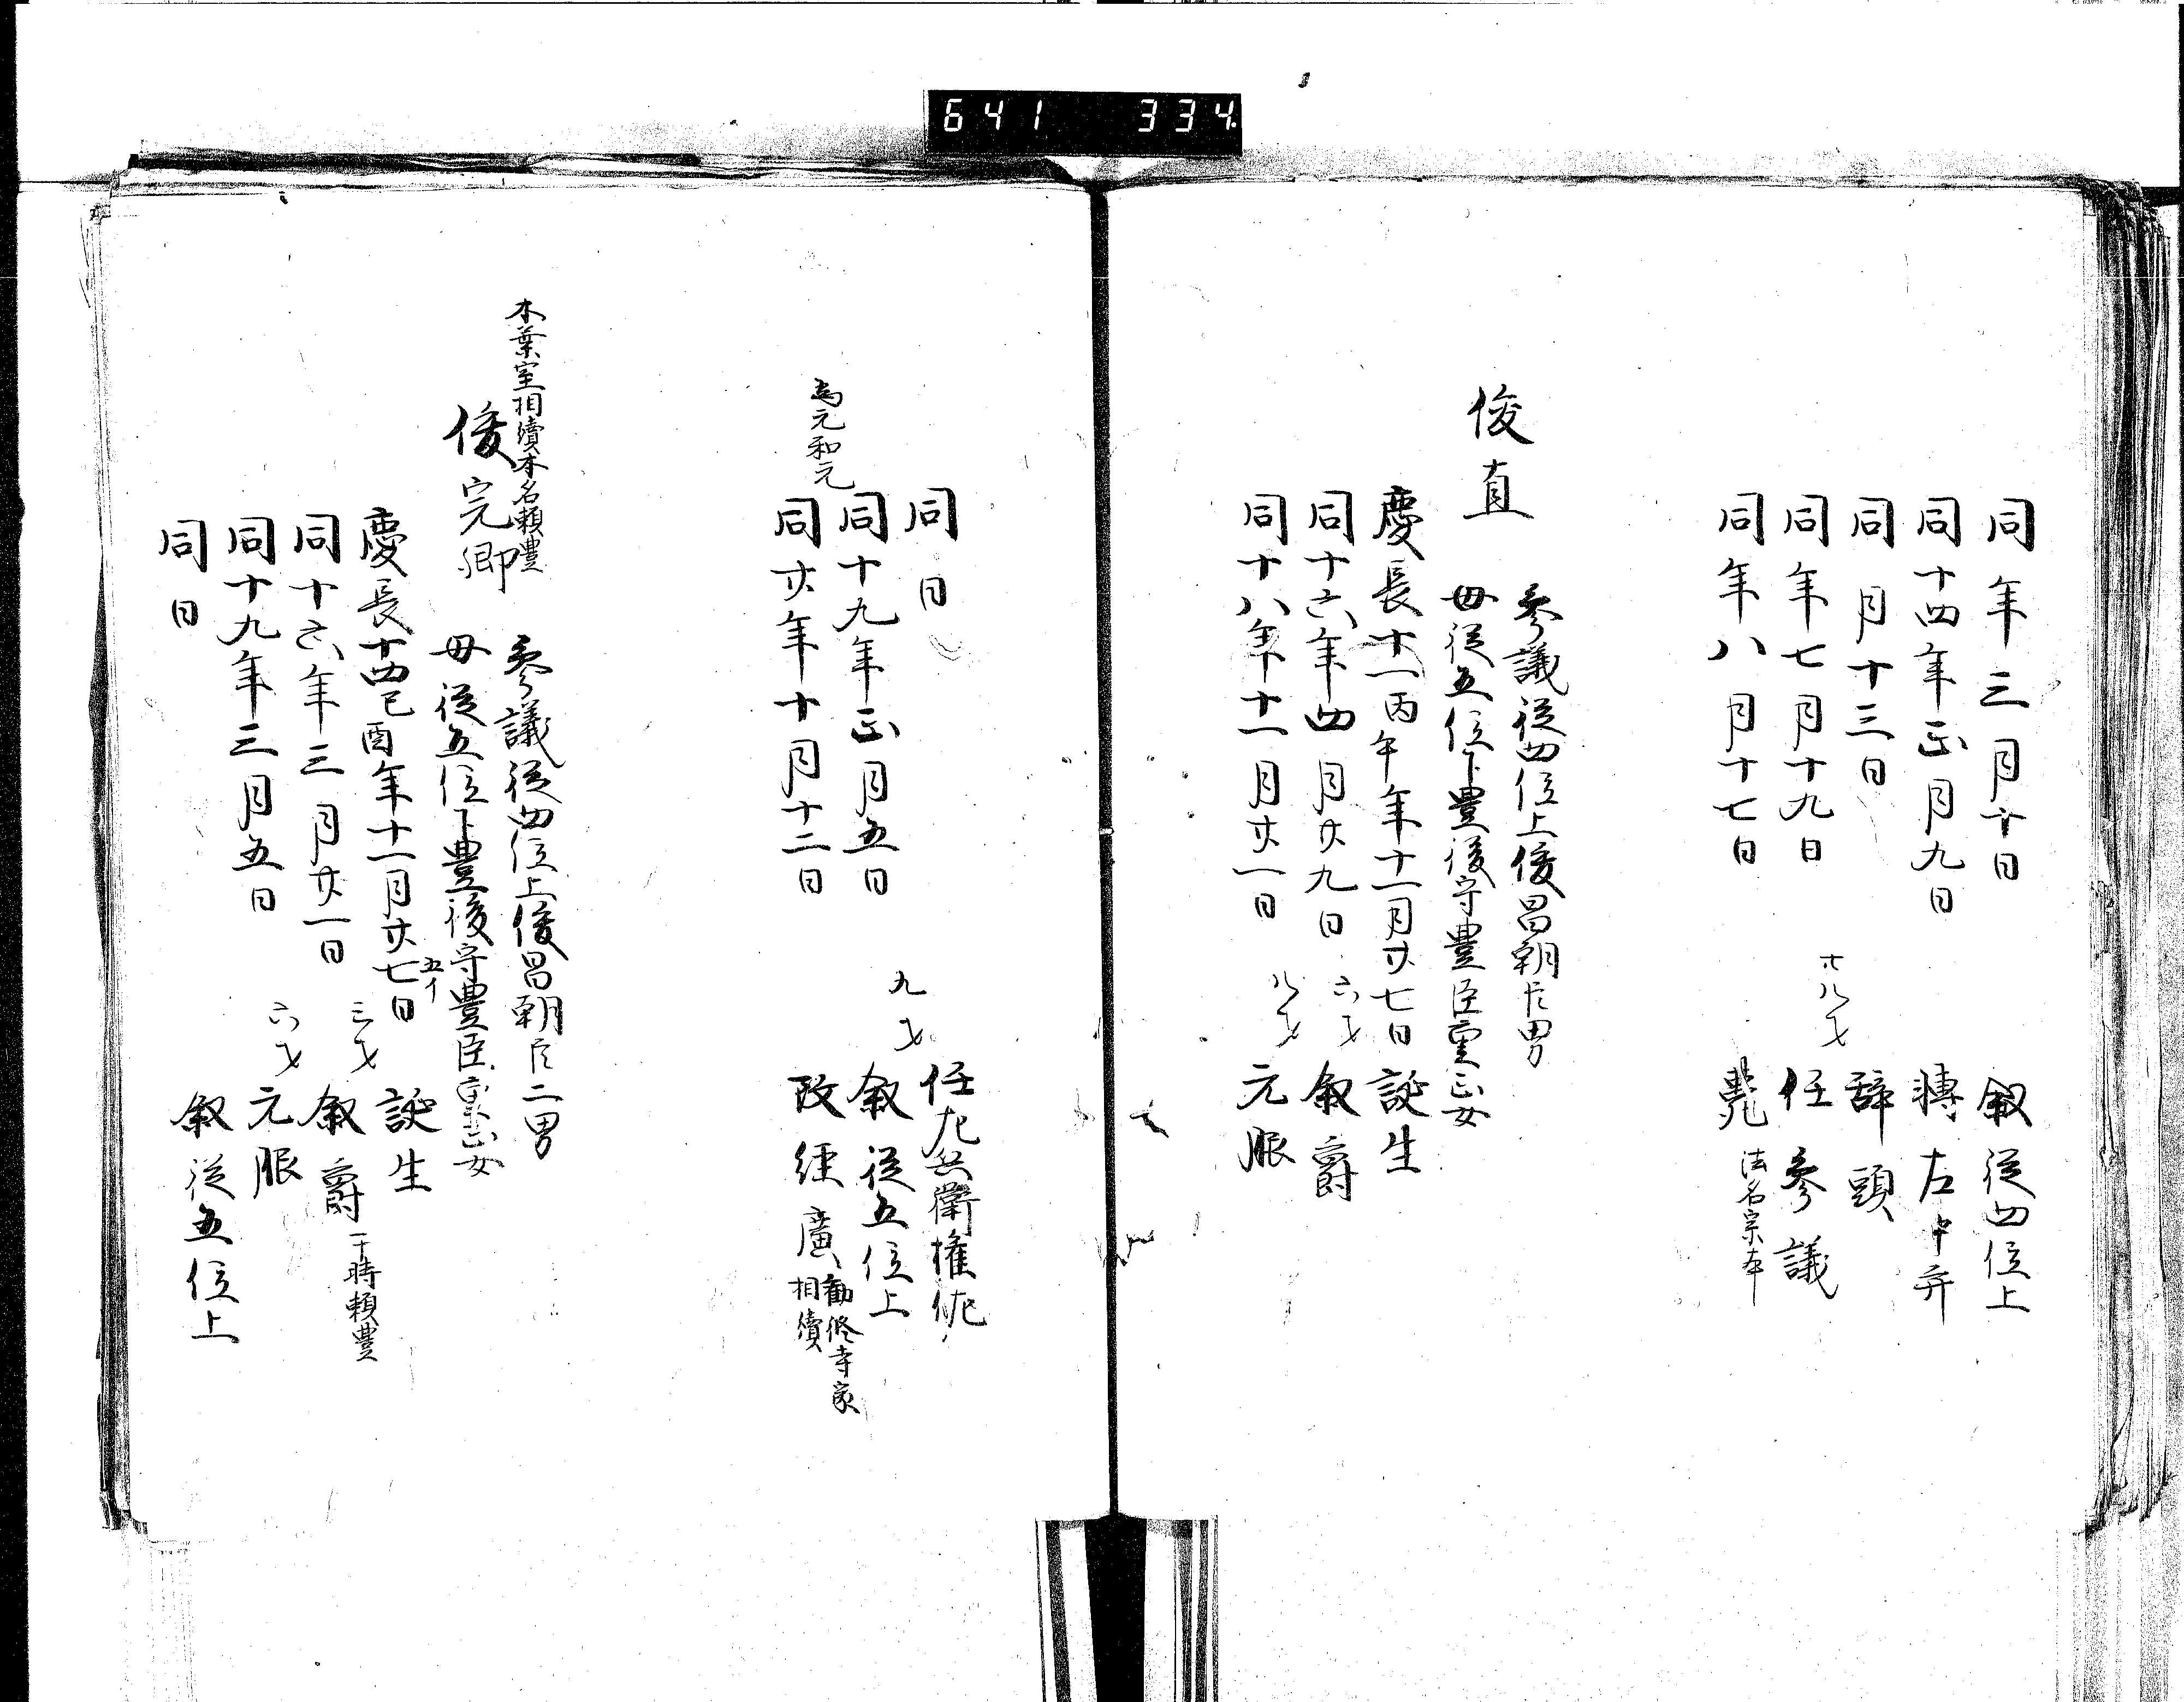 641 334
同年三月十日 叙従四位上
同十四年正月九日 轉左中弁
同月十三日 辞頭
同年七月十九日 廿八才 任参議
同年八月十七日 薨 法名宗本
俊直 参議従四位上俊昌朝臣男
母従五位下豊後守豊臣重正女
慶長十一丙午年十一月廿七日 誕生
同十六年四月廿九日 六才 叙爵
同十八年十一月廿一日 八才 元服
同日 任左兵衛権佐
同十九年正月五日 九才 叙従五位上
為元和元
同廿年十月十二日 改経廣 勧修寺家相續
本葉室相續本名頼豊
俊完卿 参議従四位上俊昌朝臣二男
母従五位下豊後守豊臣重正女
慶長十四己酉年十一月廿七日 五イ 誕生
同十六年三月廿一日 三才 叙爵 于時頼豊
同十九年三月五日 六才 元服
同日 叙従五位上